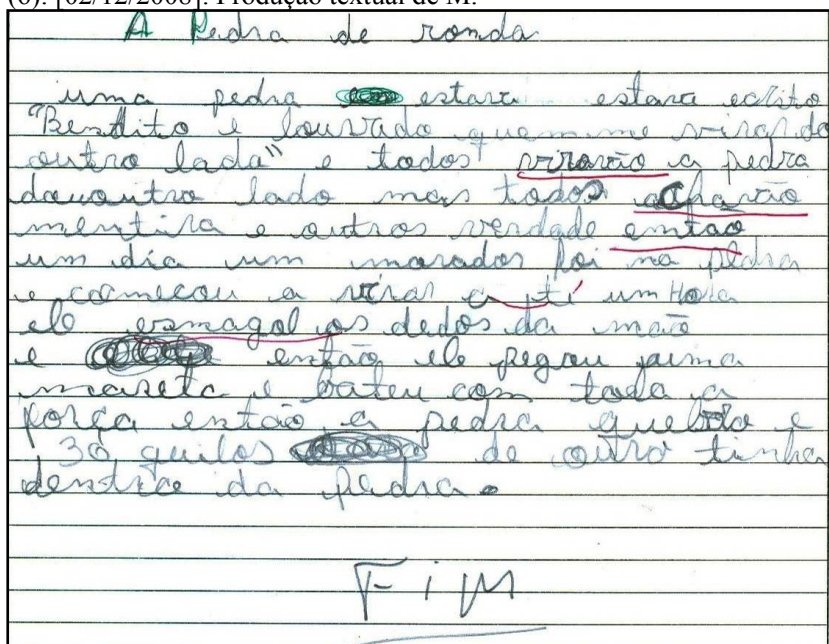 (6). [02/12/2008]. Produção textual de M.
A Pedra de ronda
uma pedra estava estava ecrito
"Bendito e louvado quemme virar do
outro lada" e todos virarão a pedra
dououtro lado mais todos acharão
mentira e outros verdade emtão
um dia um morador foi na pedra
e comecou a virar a tí um Hora
ele esmagol os dedos da mão
e então ele pegou uma
mareta e bateu com toda a
força então a pedra quebro e
30 quilos de outro tinha
dentro da pedra.
Fim